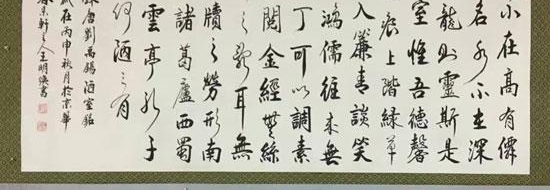 不在高有僊
名水不在深
龍則靈斯是
室惟吾德馨
痕上階緑草
入簾青談笑
鴻儒往来無
丁可以調素
閲金經無絲
之亂耳無
牘之勞形南
諸葛廬西蜀
雲亭孔子
何陋之有
唐劉禹錫陋室銘
在丙申秋月於京華
京軒主人王明書